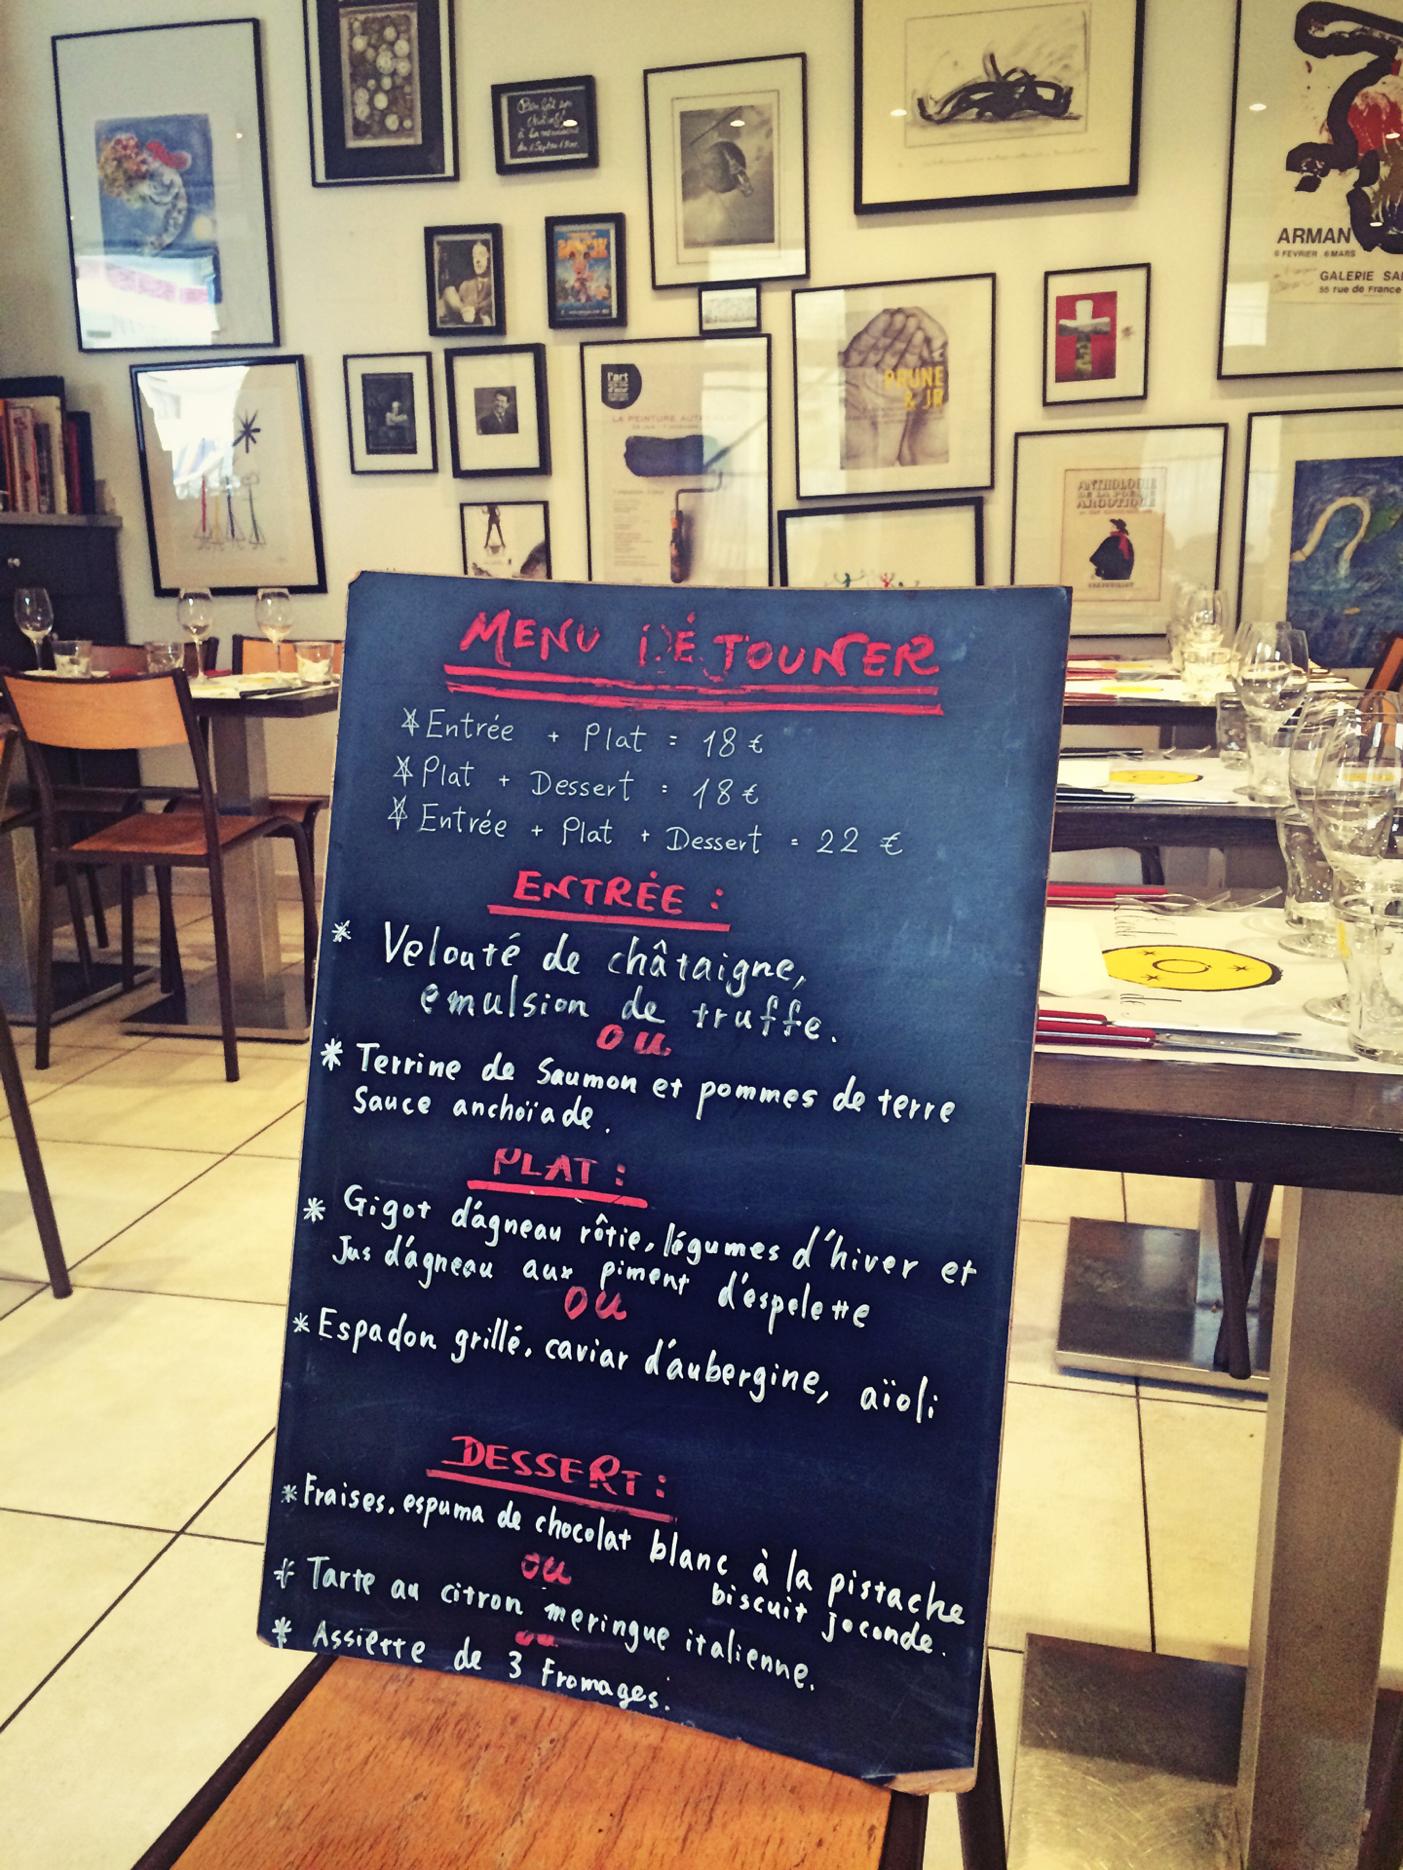 ARMAN
6 FEVRIER 6 MARS
GALERIE SA
55 rue de France
l'art
LA PEINTURE AUT
PRUNE
& JR
ANTHOLOGIE
DE LA POÉSIE
ARGOTIQUE
MENU DÉJOUNER
Entrée + Plat = 18 €
Plat + Dessert = 18 €
Entrée + Plat + Dessert = 22 €
ENTRÉE :
* Velouté de châtaigne,
emulsion de truffe.
OU
* Terrine de Saumon et pommes de terre
Sauce anchoïade.
PLAT :
* Gigot d'agneau rôtie, légumes d'hiver et
Jus d'agneau aux piment d'éspelette
OU
* Espadon grillé, caviar d'aubergine, aïoli
DESSERT :
* Fraises, espuma de chocolat blanc à la pistache
biscuit joconde.
ou
* Tarte au citron meringue italienne.
ou
* Assiette de 3 Fromages.